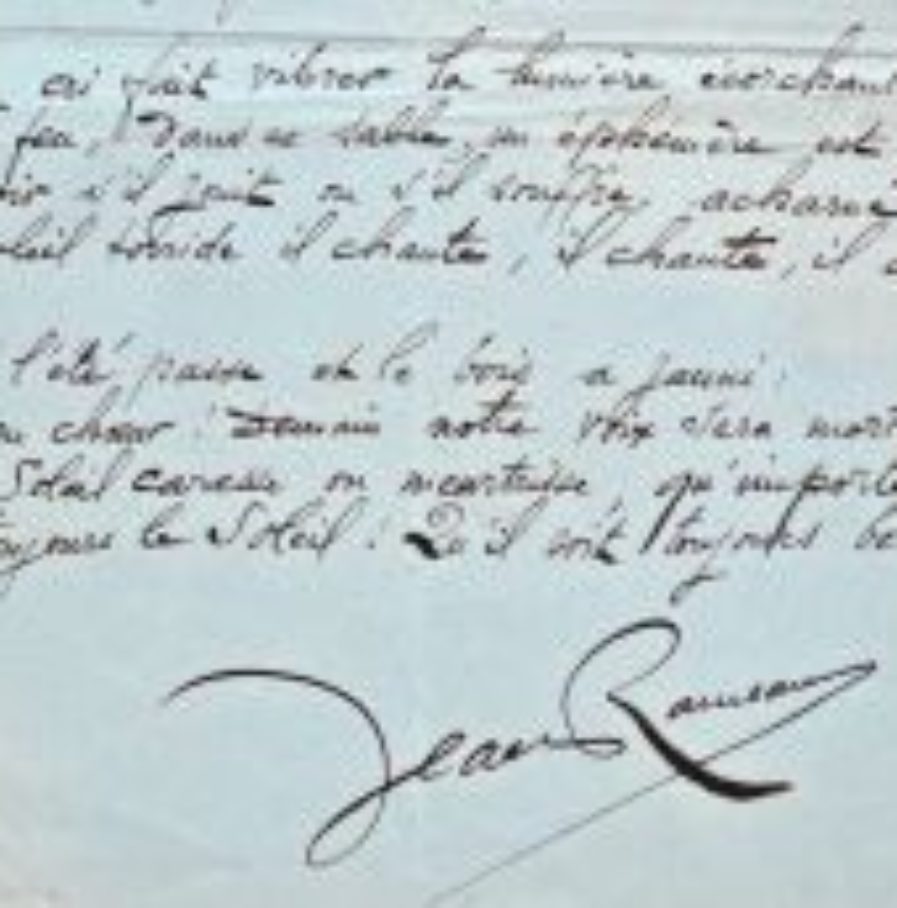 cri fait vibrer la lumière écorchant
feu, Dans ce sable, un éphémère est
s'il jouit ou s'il souffre, acharné
torride il chante, il chante, il
l'été passe et le bois a jauni.
chœur! Demain notre voix sera
Soleil caresse ou meurtrisse, qu'importe
le Soleil! Qu'il soit toujours
Jean Rameau